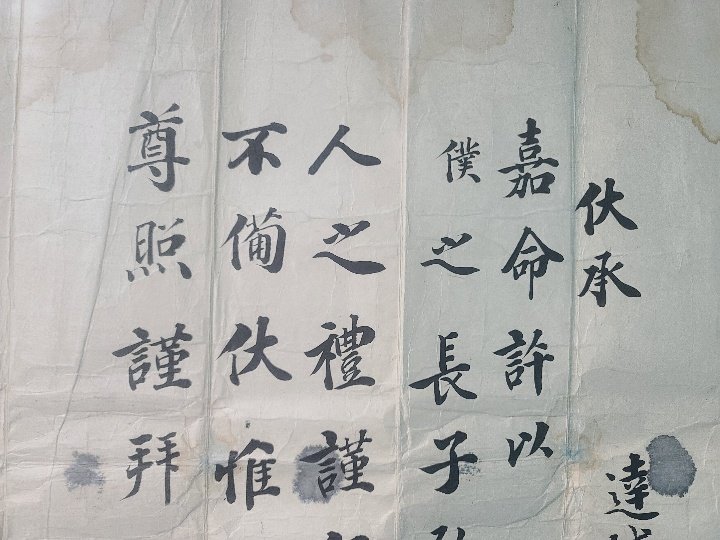 伏承
達
嘉命許以
僕之長子
人之禮謹
不備伏惟
尊照謹拜